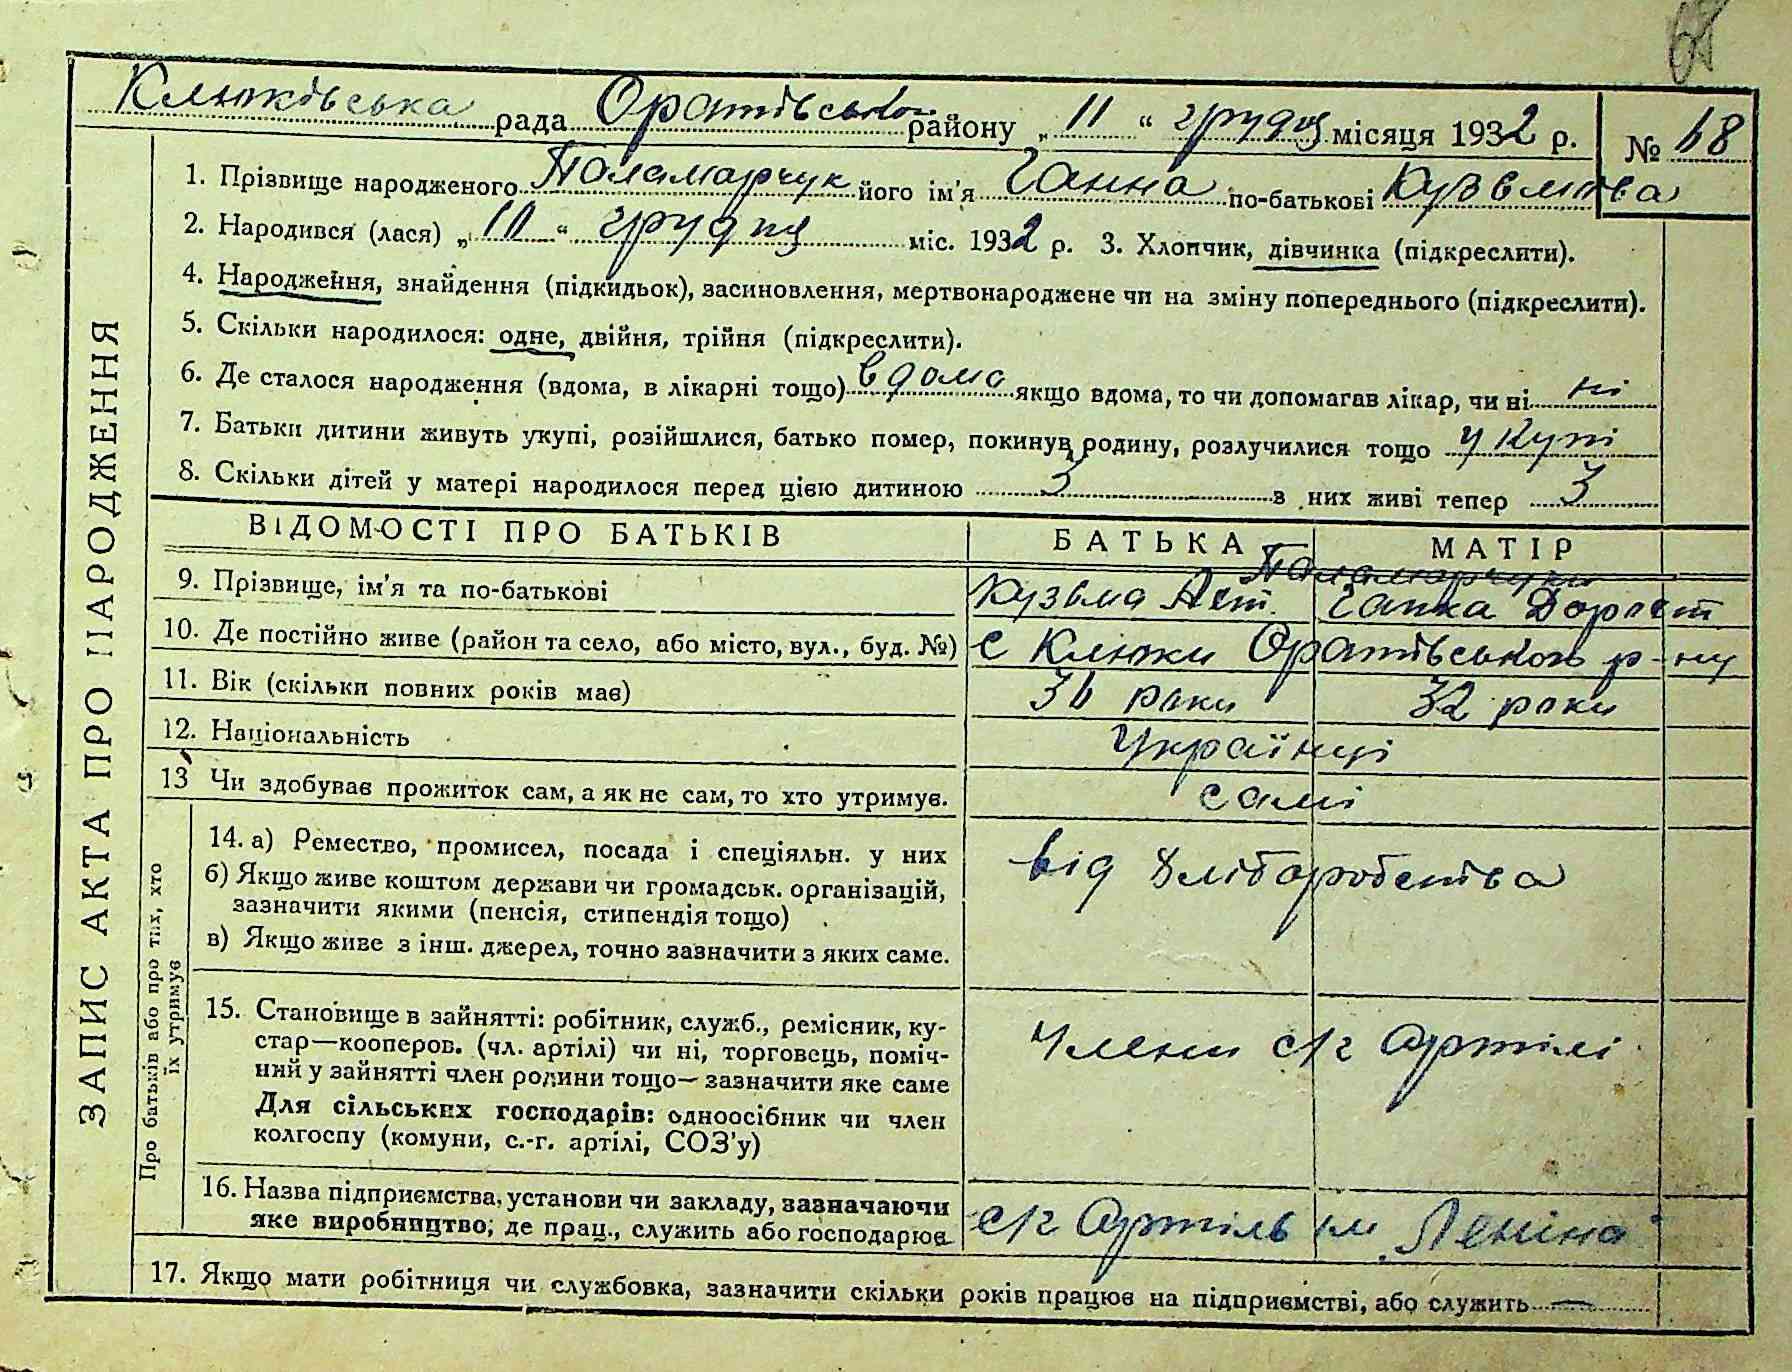 68
Клюківська рада Оратівського району „ 11 “ грудня місяця 1932 р. № 68
1. Прізвище народженого Паламарчук його ім'я Ганна по-батькові Кузьмівна
2. Народився (лася) „ 10 “ грудня міс. 1932 р. 3. Хлопчик, дівчинка (підкреслити).
4. Народження, знайдення (підкидьок), засиновлення, мертвонароджене чи на зміну попереднього (підкреслити).
5. Скільки народилося: одне, двійня, трійня (підкреслити).
6. Де сталося народження (вдома, в лікарні тощо) вдома якщо вдома, то чи допомагав лікар, чи ні ні
7. Батьки дитини живуть укупі, розійшлися, батько помер, покинув родину, розлучилися тощо укупі
8. Скільки дітей у матері народилося перед цією дитиною 3 з них живі тепер 3
ЗАПИС АКТА ПРО НАРОДЖЕННЯ
ВІДОМОСТІ ПРО БАТЬКІВ БАТЬКА МАТІР
Паламарчуки
9. Прізвище, ім'я та по-батькові Кузьма Ганка
10. Де постійно живе (район та село, або місто, вул., буд. №) с Клюки Оратівського р-ну
11. Вік (скільки повних років має) 36 роки 32 роки
12. Національність Українці
13 Чи здобував прожиток сам, а як не сам, то хто утримує. самі
Про батьків або про тих, хто їх утримує
14. а) Ремество, промисел, посада і спеціяльн. у них від хліборобства
б) Якщо живе коштом держави чи громадськ. організацій,
зазначити якими (пенсія, стипендія тощо)
в) Якщо живе з інш. джерел, точно зазначити з яких саме.
15. Становище в зайнятті: робітник, служб., ремісник, ку-
стар—кооперов. (чл. артілі) чи ні, торговець, поміч- Члени с/г артілі
ний у зайнятті член родини тощо— зазначити яке саме
Для сільських господарів: одноосібник чи член
колгоспу (комуни, с.-г. артілі, СОЗ'у)
16. Назва підприємства, установи чи закладу, зазначаючи
яке виробництво, де прац., служить або господарює с/г артіль ім „Леніна“
17. Якщо мати робітниця чи службовка, зазначити скільки років працює на підприємстві, або служить —